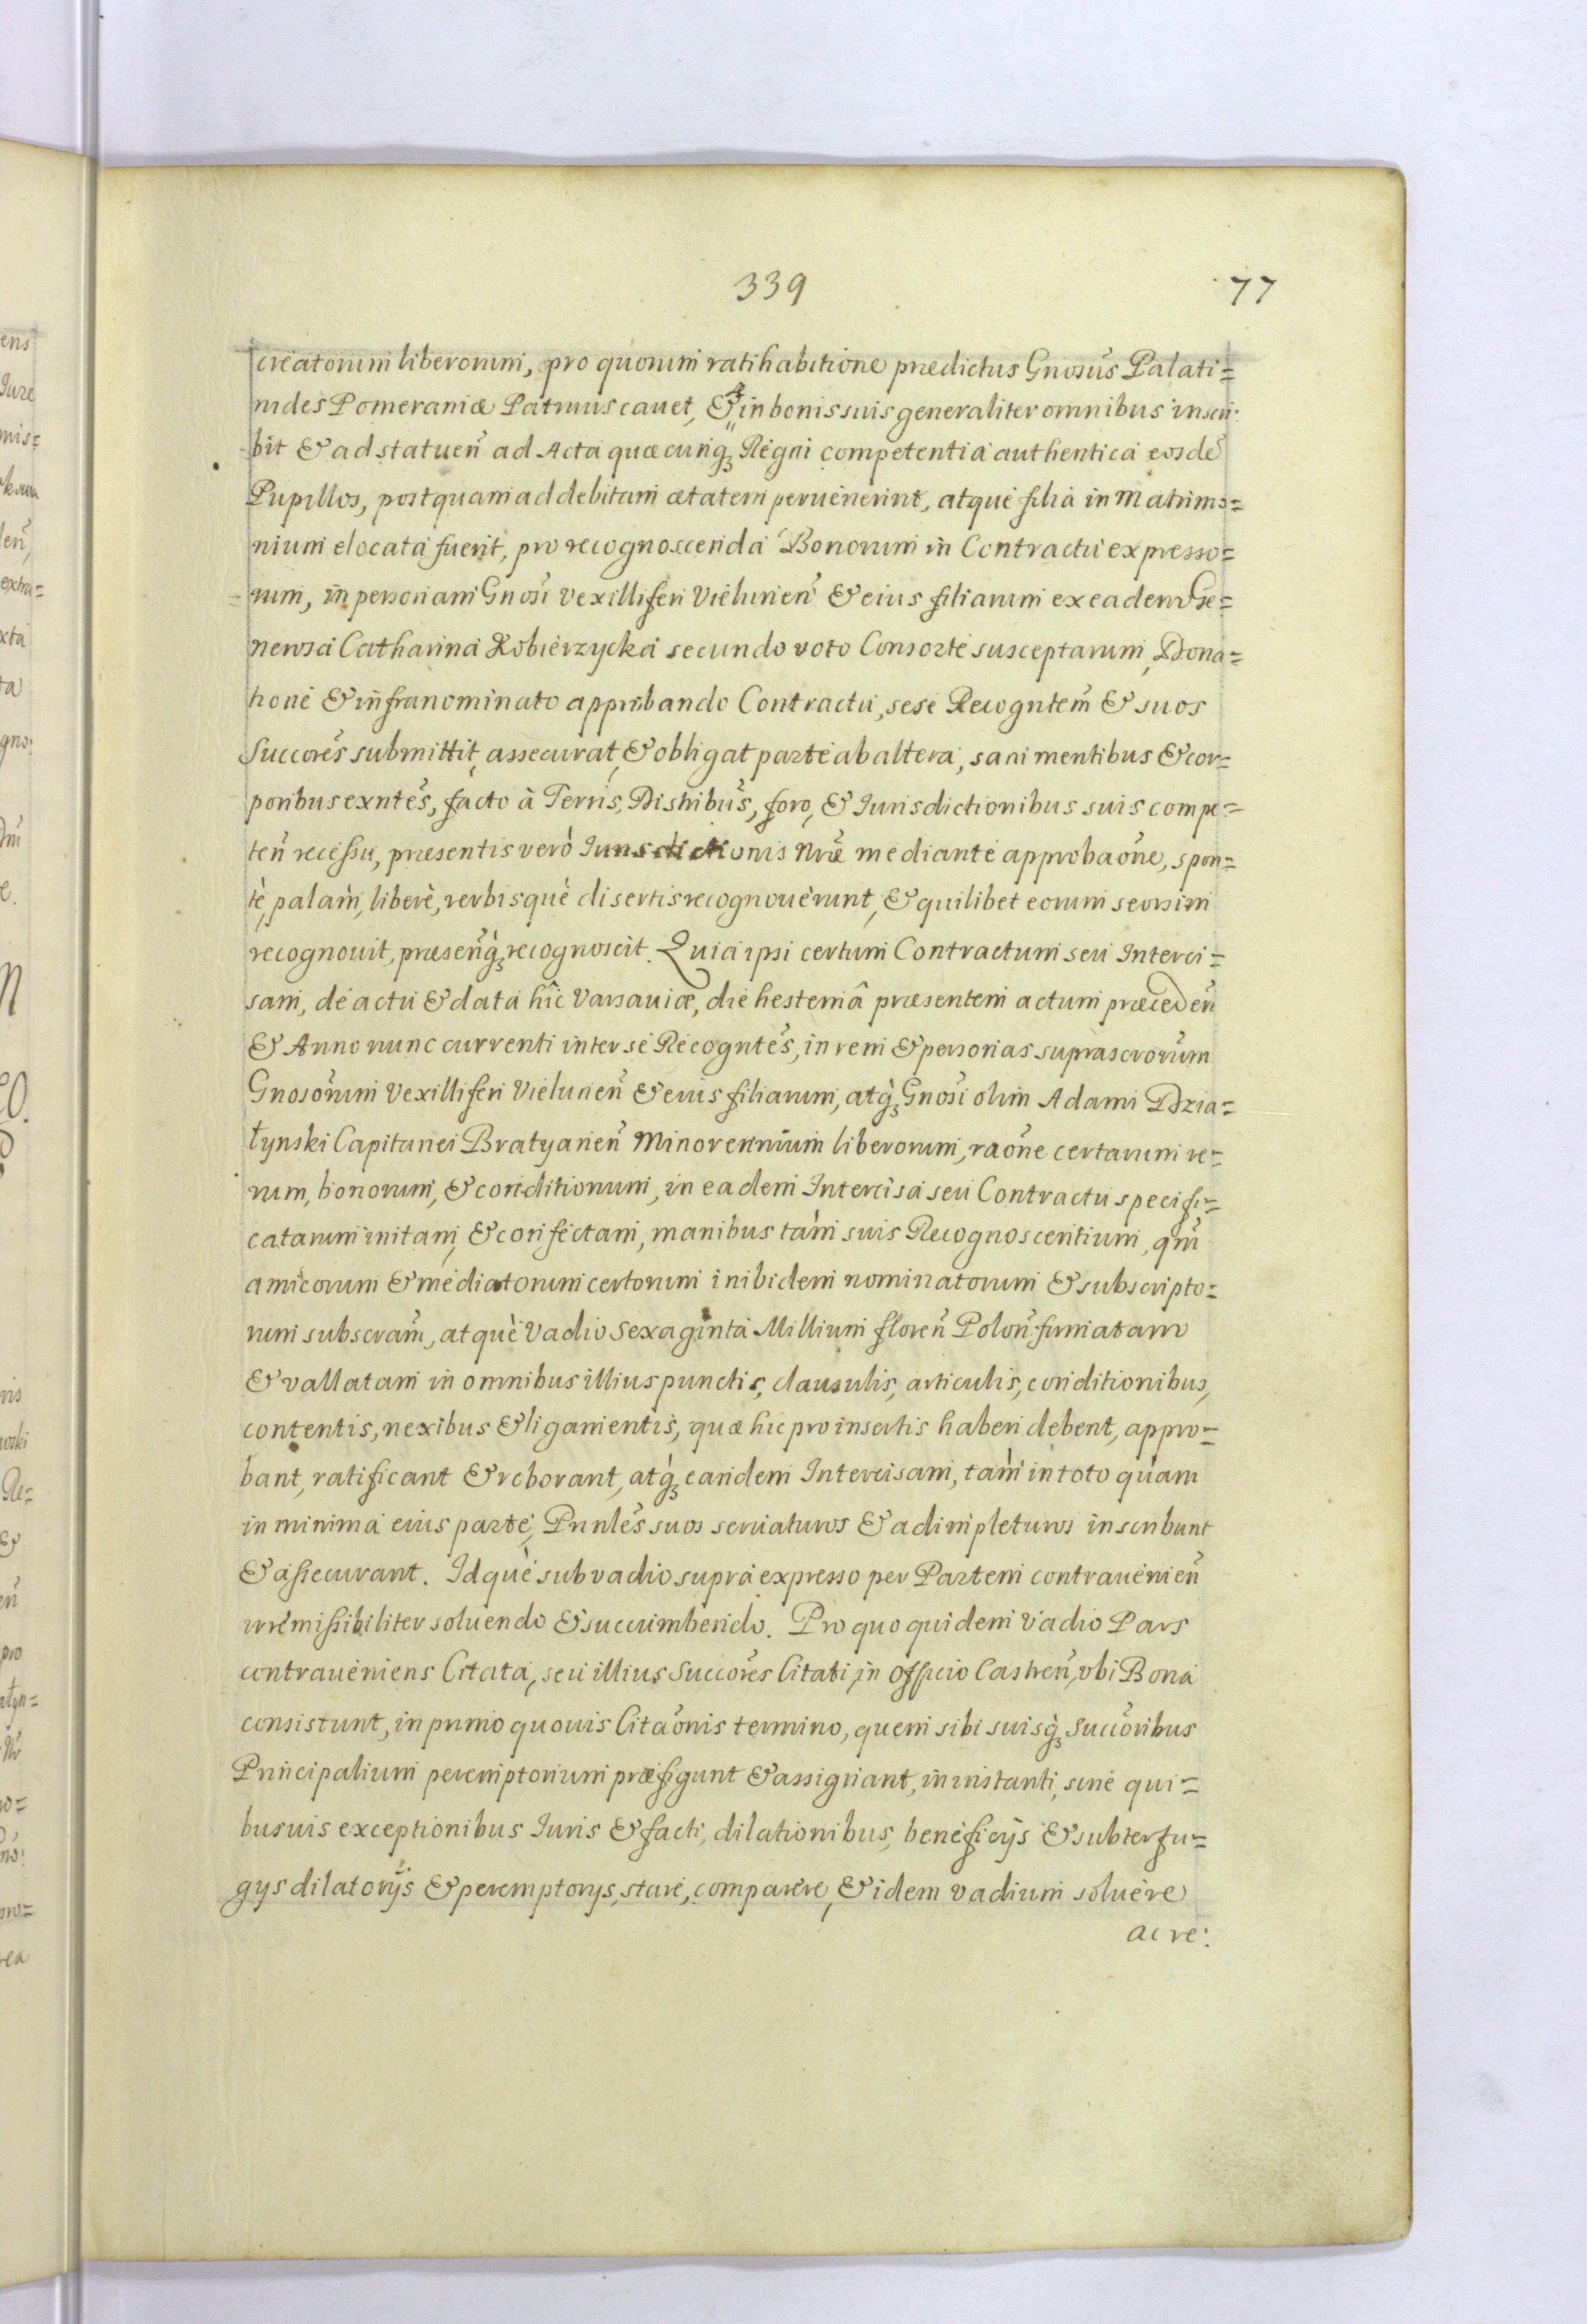 339
77
creatorum liberorum, pro quorum ratihabitione prædictus Gnosūs Palati=
nides Pomeraniæ Patruus cauet, & in bonis suis generaliter omnibus inscri:
bit & ad statuen̄ ad Acta quæcunq̨ Regni competentia authentica eosdē
Pupillos, postquam ad debitam ætatem peruenerint, atque filia in Matrimo=
nium elocata fuerit, pro recognoscenda Bonorum in Contractu expresso=
rum, in personam Gnosi Vexilliferi Vielunen̄ & eius filiarum ex eadem Ge=
nerosa Catharina Kobierzycka secundo voto Consorte susceptarum, Dona=
tione & infranominato approbando Contractu, sese Recogntem̄ & suos
Succorēs submittit, assecurat, & obligat parte ab altera, sani mentibus & cor=
poribus exntēs, facto à Terris, Distribūs, foro, & Iurisdictionibus suis compe=
ten̄ recessu, præsentis verò Iurisdictionis Nrǣ mediante approbaōne, spon=
tè, palàm, liberè, verbisquè disertis recognouerunt, & quilibet eorum seorsim
recognouit, præsenq̨̄ recognoscit. Quia ipsi certum Contractum seu Interci=
sam, de actu & data hîc Varsauiæ, die hesternâ præsentem actum præceden̄
& Anno nunc currenti inter se Recogntēs, in rem & personas suprascrorūm
Gnosorūm Vexilliferi Vielunen̄ & eius filiarum, atq̨ Gnosī olim Adami Dzia=
łynski Capitanei Bratyanen̄ Minorennium liberorum, raōne certarum re=
rum, bonorum, & conditionum, in eadem Intercisa seu Contractu specifi=
catarum initam, & confectam, manibus tàm suis Recognoscentium, qm̄
amicorum & mediatorum certorum inibidem nominatorum & subscripto=
rum subscram̄, atquè vadio Sexaginta Millium floren̄ Polon̄ firmatam
& vallatam in omnibus illius punctis, clausulis, articulis, conditionibus,
contentis, nexibus & ligamentis, quæ hic pro insertis haberi debent, appro=
bant, ratificant & roborant, atq̨ eandem Intercisam, tàm in toto quàm
in minima eius parte, Prinlēs suos seruaturos & adimpleturos inscribunt
& assecurant. Idquè sub vadio supra expresso per Partem contrauenien̄
irremissibiliter soluendo & succumbendo. Pro quo quidem Vadio Pars
contraueniens Citata, seu illius Succorēs Citati, in Officio Castren̄, vbi Bona
consistunt, in primo quouis Citaōnis termino, quem sibi suisq̨ Succoribus
Principalium peremptorium præfigunt & assignant, in instanti, sine qui=
busuis exceptionibus Iuris & facti, dilationibus, beneficijs & subterfu=
gys dilatorijs & peremptorys, stare, comparere, & idem vadium soluere
ac re: